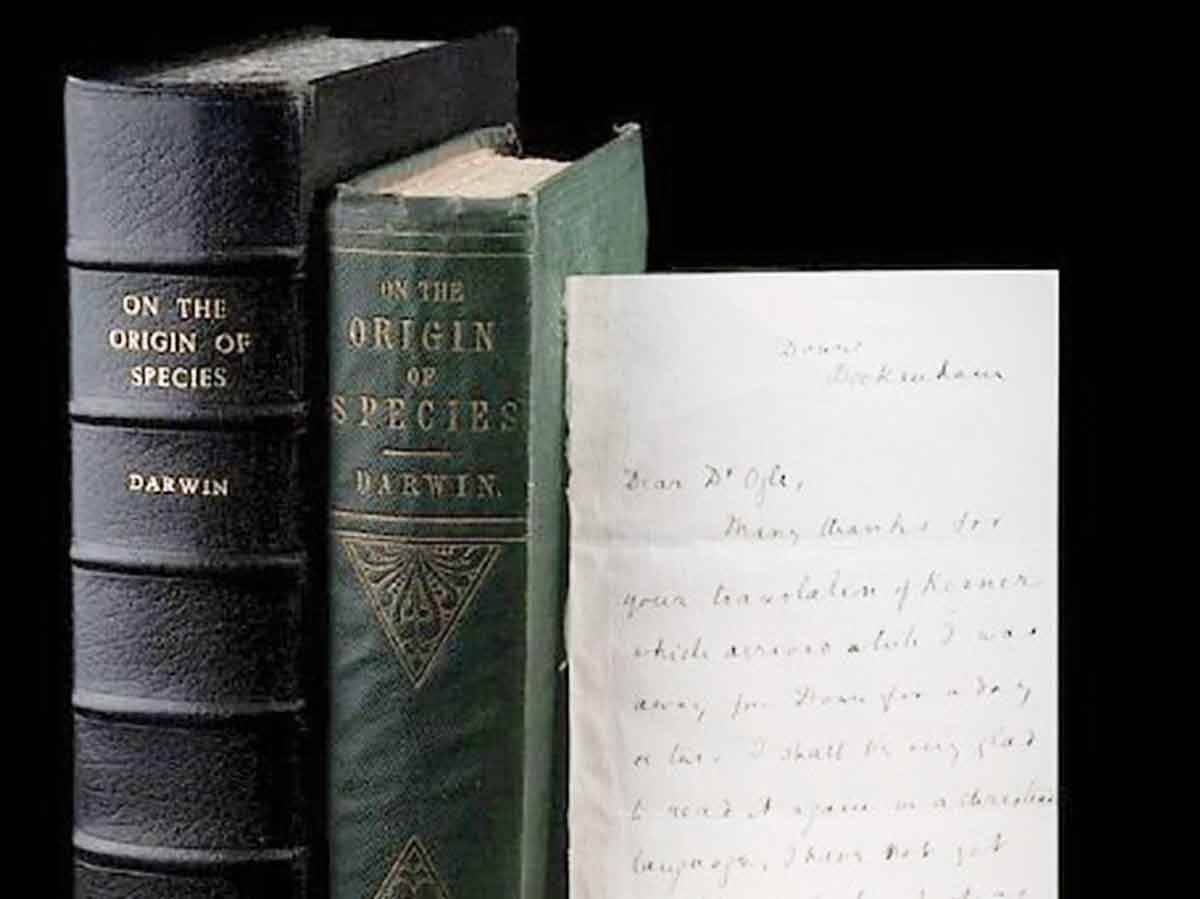 ON THE
ORIGIN OF
SPECIES
DARWIN
ON THE
ORIGIN
OF
SPECIES
DARWIN
Down
Beckenham
Dear Dr Ogle,
Many thanks for
your translation of Kerner
which arrived while I was
away from Down for a day
or two. I shall be very glad
to read it again in a Christian
language. I have not got